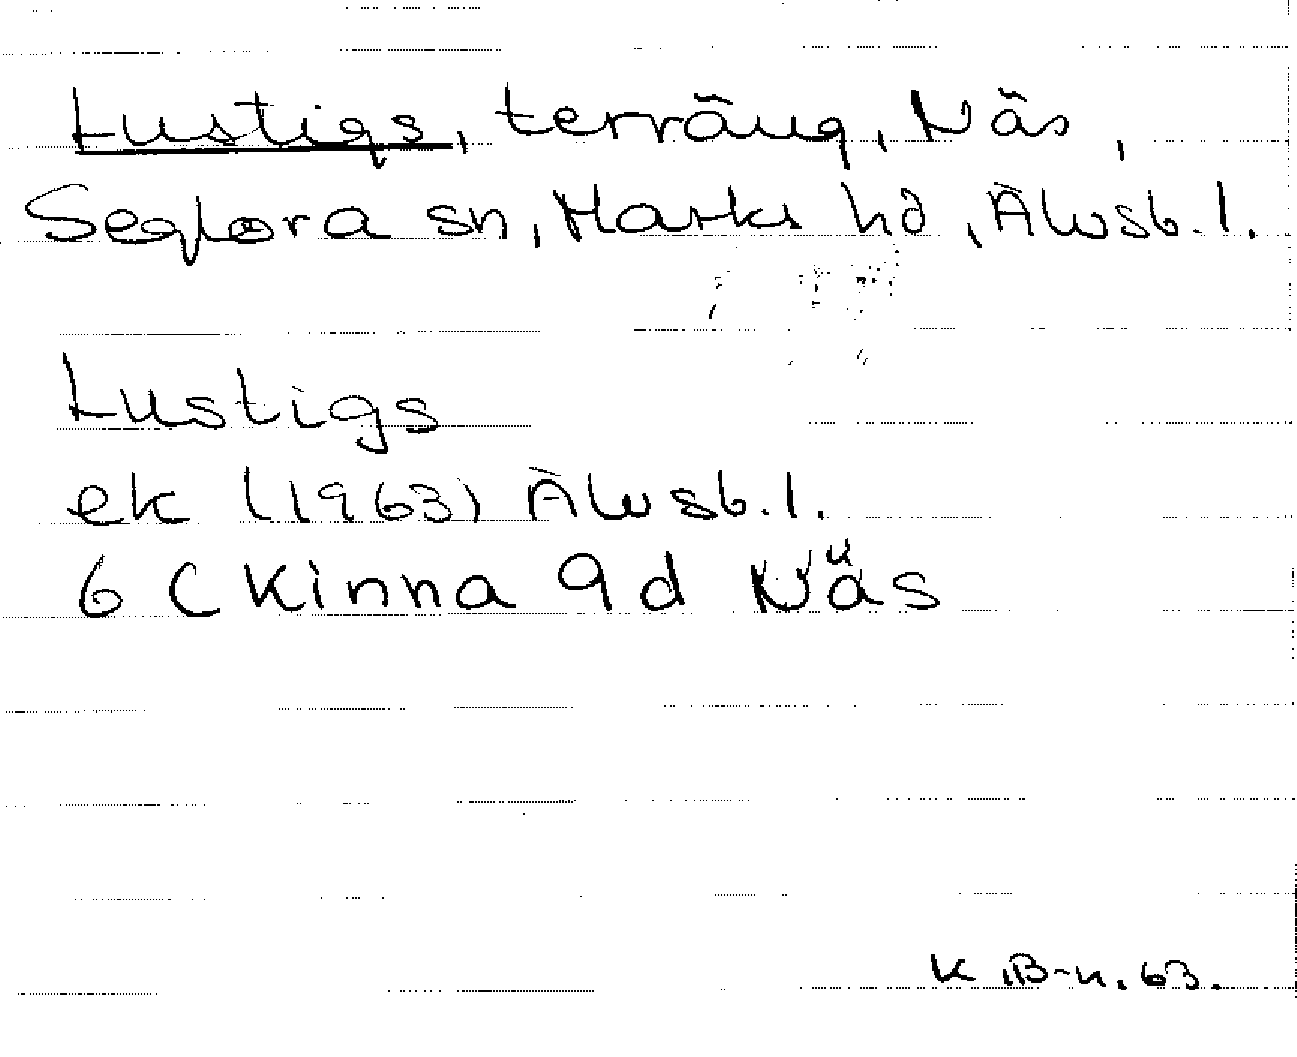 Lustigs, terräng, Näs,
Seglora sn, Marks hd, Älvsb. l.
Lustigs
ek (1963) Älvsb. l.
6 C Kinna 9 d Näs
K. B-n. 63.